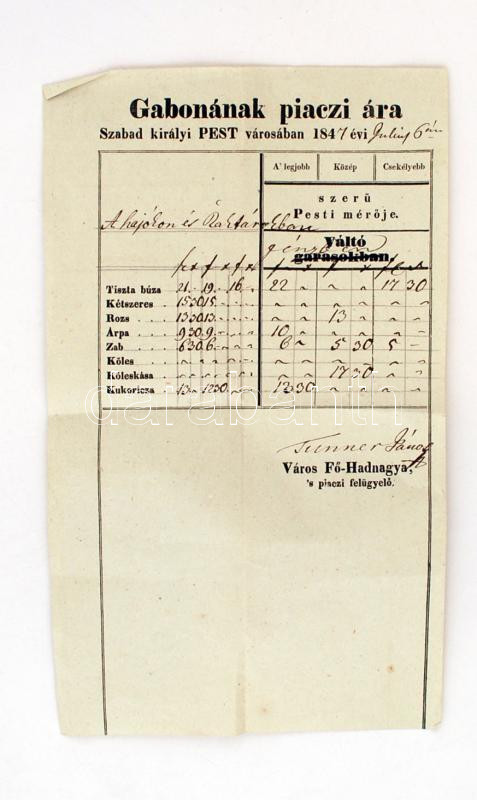 Gabonának piaczi ára
Szabad királyi PEST városában 1847 évi Julius 6án
A' legjobb Közép Csekélyebb
szerű
Pesti mérője.
A hajókon és Raktárokban
Váltó
garasokban
pénzben
f x f x f x f x f x f x
Tiszta búza 21 - 19 - 16 - 22 " " " 17 30
Kétszeres 15 30 15 - - - " " " " " "
Rozs 13 30 13 - - - " " 13 - " "
Árpa 9 30 9 - - - 10 " " " " "
Zab 6 30 6 - - - 6 " 5 30 5 -
Köles - - - - - - " " " " " "
Kóleskása - - - - - - " " 17 30 " "
Kukoricza 13 - 12 30 - - 13 30 " " " "
darabanth
Tunner János
Város Fő-Hadnagya,
's piaczi felügyelő.